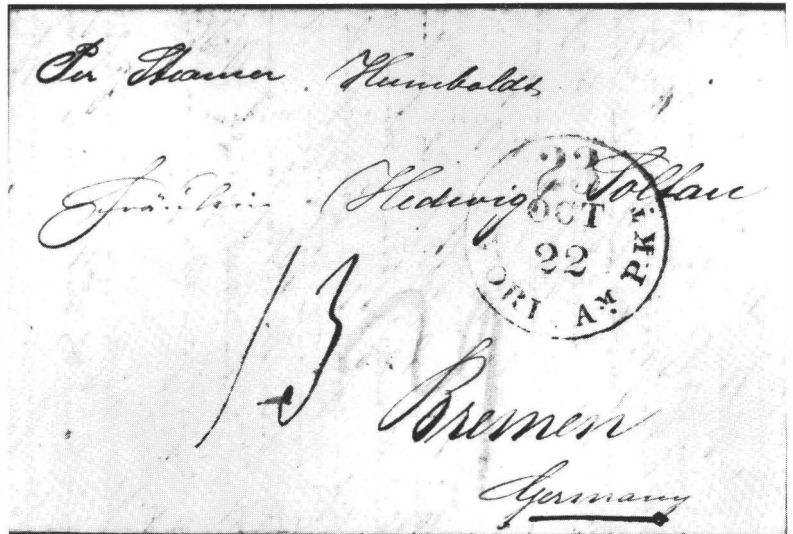 Per Steamer Humboldt
Fräulein Hedwig Soltau
23
OCT
22
YORK AM PKT
13
Bremen
Germany